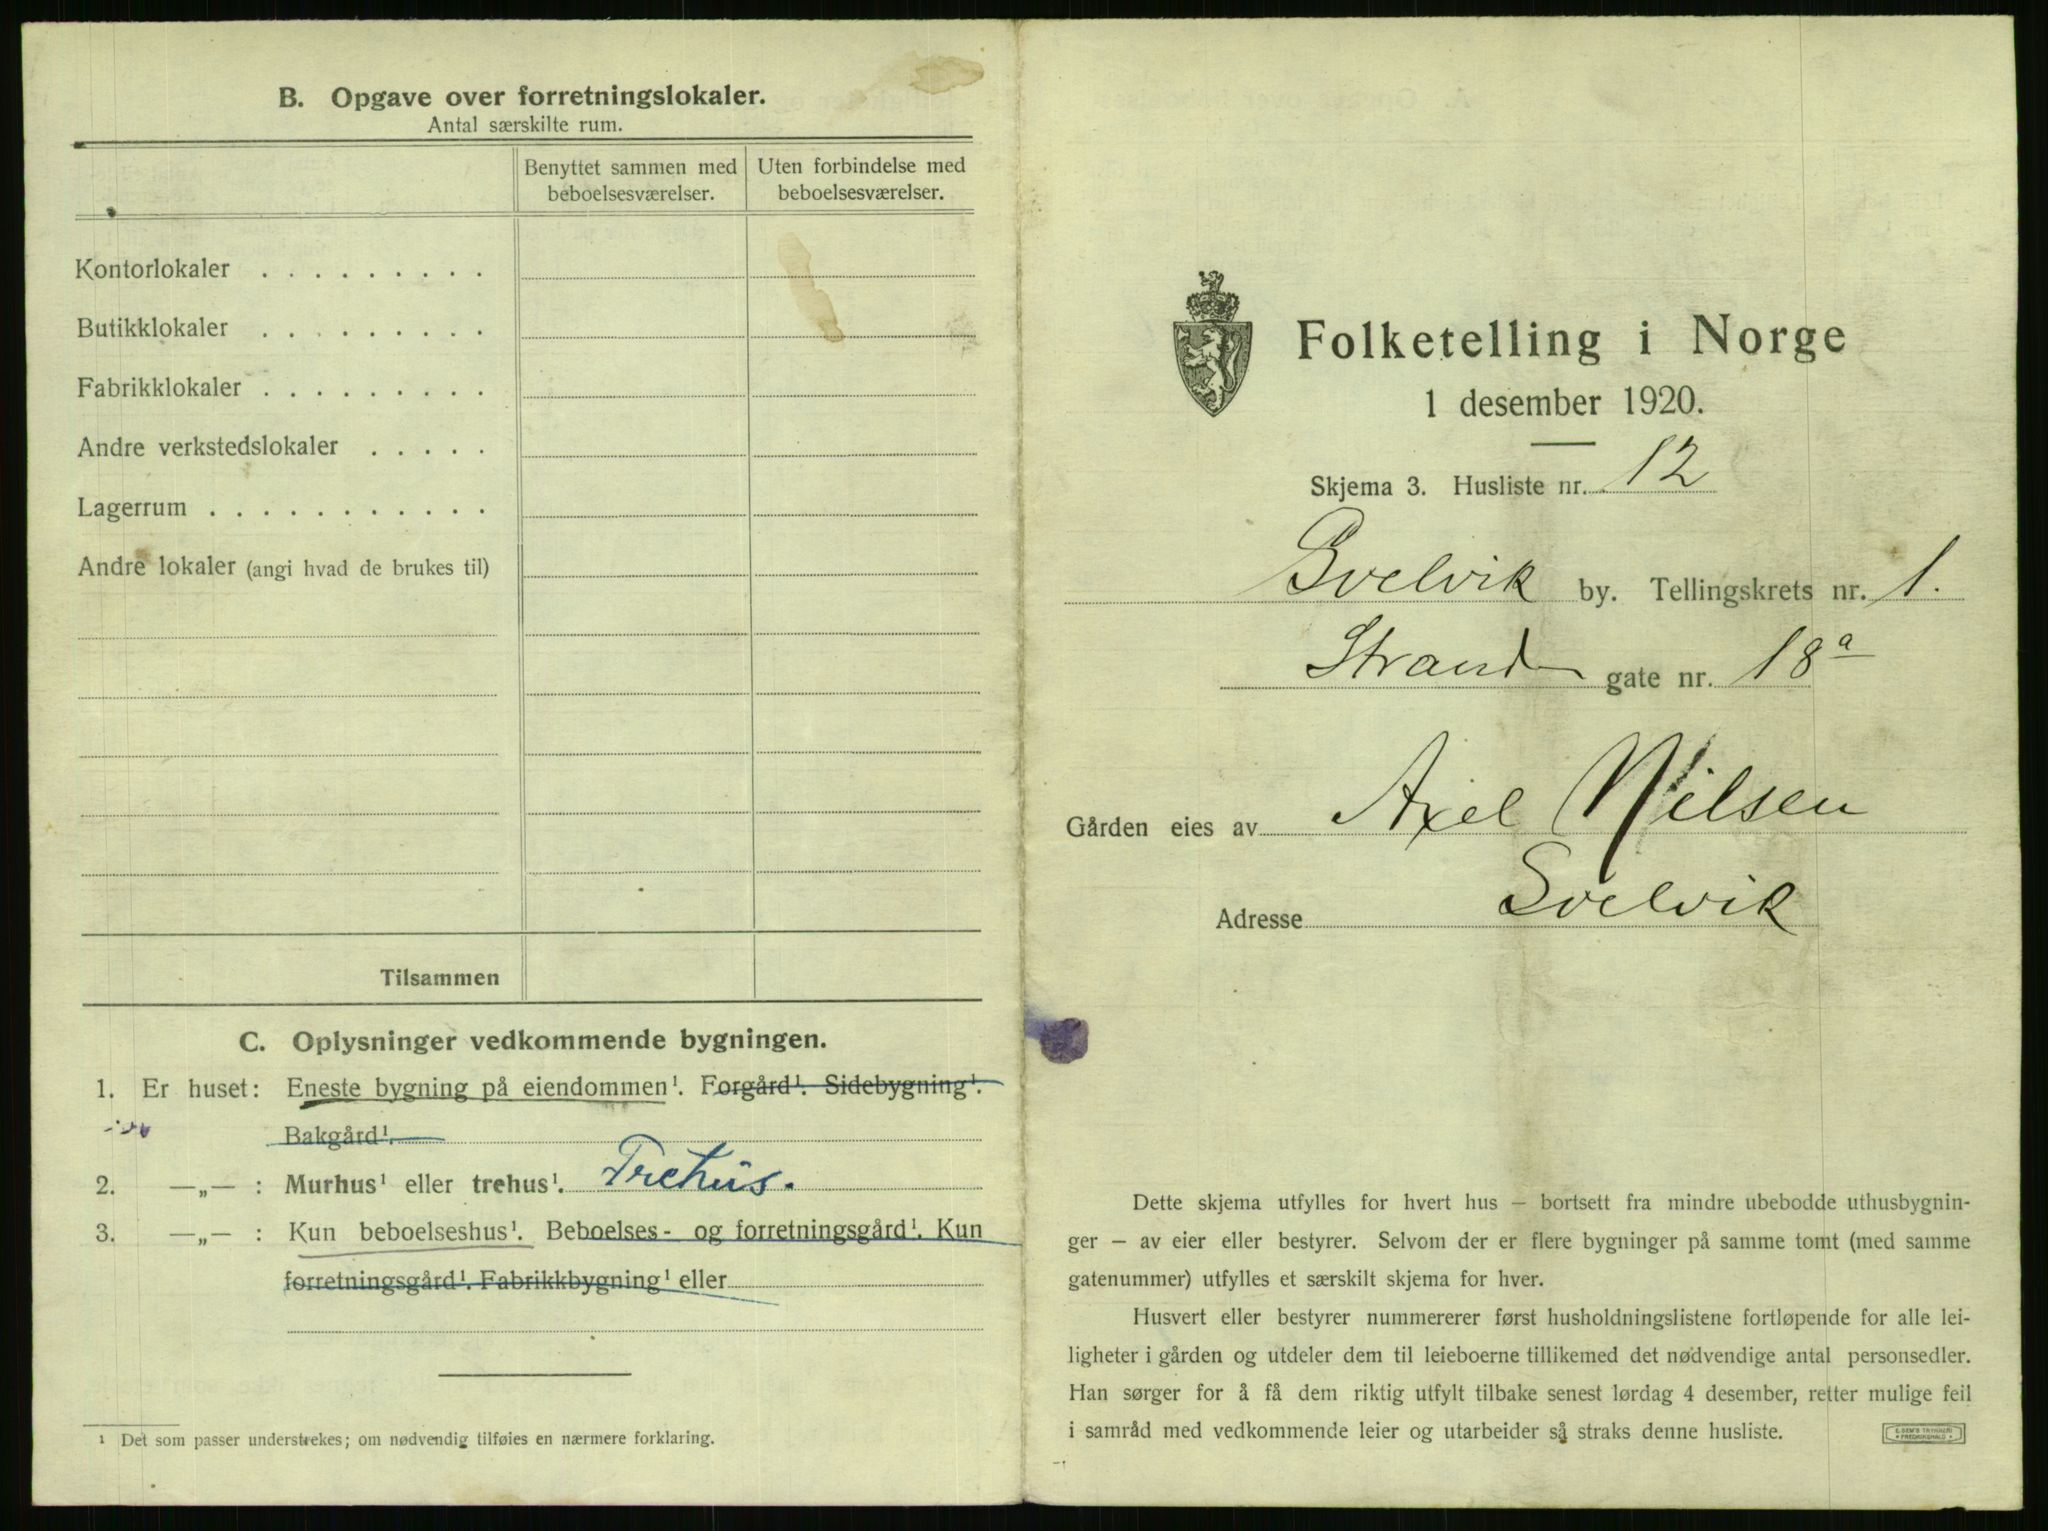 B. Opgave over forretningslokaler.
Antal særskilte rum.
Benyttet sammen med beboelsesværelser.
Uten forbindelse med beboelsesværelser.
Kontorlokaler . . . . . . . . .
Butikklokaler . . . . . . . . .
Fabrikklokaler . . . . . . . . .
Andre verkstedslokaler . . . . .
Lagerrum . . . . . . . . . . .
Andre lokaler (angi hvad de brukes til)
Tilsammen
C. Oplysninger vedkommende bygningen.
1. Er huset: Eneste bygning på eiendommen¹. Forgård¹. Sidebygning¹.
Bakgård¹.
2. —„— : Murhus¹ eller trehus¹. Trehus.
3. —„— : Kun beboelseshus¹. Beboelses- og forretningsgård¹. Kun
forretningsgård¹. Fabrikkbygning¹ eller
¹ Det som passer understrekes; om nødvendig tilføies en nærmere forklaring.
Folketelling i Norge
1 desember 1920.
Skjema 3. Husliste nr. 12
Svelvik by. Tellingskrets nr. 1.
Strand gate nr. 18a
Gården eies av Axel Nilsen
Adresse Svelvik
Dette skjema utfylles for hvert hus — bortsett fra mindre ubebodde uthusbygnin-
ger — av eier eller bestyrer. Selvom der er flere bygninger på samme tomt (med samme
gatenummer) utfylles et særskilt skjema for hver.
Husvert eller bestyrer nummererer først husholdningslistene fortløpende for alle lei-
ligheter i gården og utdeler dem til leieboerne tillikemed det nødvendige antal personsedler.
Han sørger for å få dem riktig utfylt tilbake senest lørdag 4 desember, retter mulige feil
i samråd med vedkommende leier og utarbeider så straks denne husliste.
E. SEM'S TRYKKERI
FREDRIKSHALD